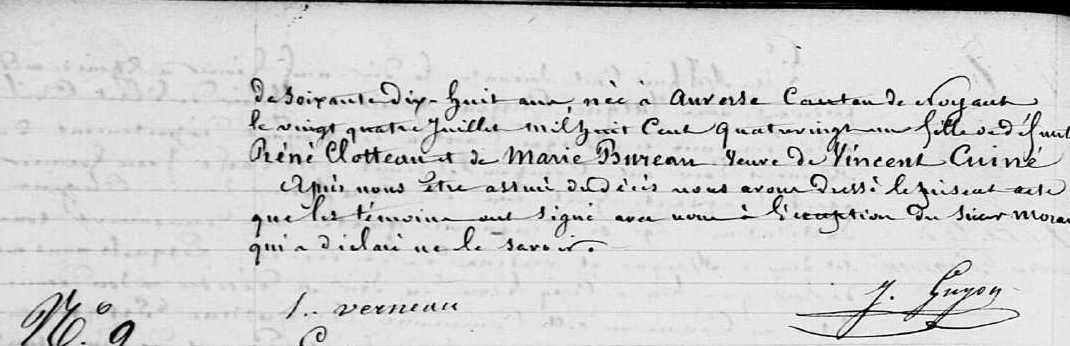 de soixante dix-huit ans, née à Auverse Canton de Noyant
le vingt quatre Juillet mil huit Cent quatrevingt un fille de défunt
Réné Clotteau et de Marie Bureau veuve de Vincent Cuiné
Après nous être assuré du décès nous avons dressé le présent acte
que les témoins ont signé avec nous à l'exception du sieur Morau
qui a déclaré ne le savoir.
L. Verneau
J. Guyon
N.° 9